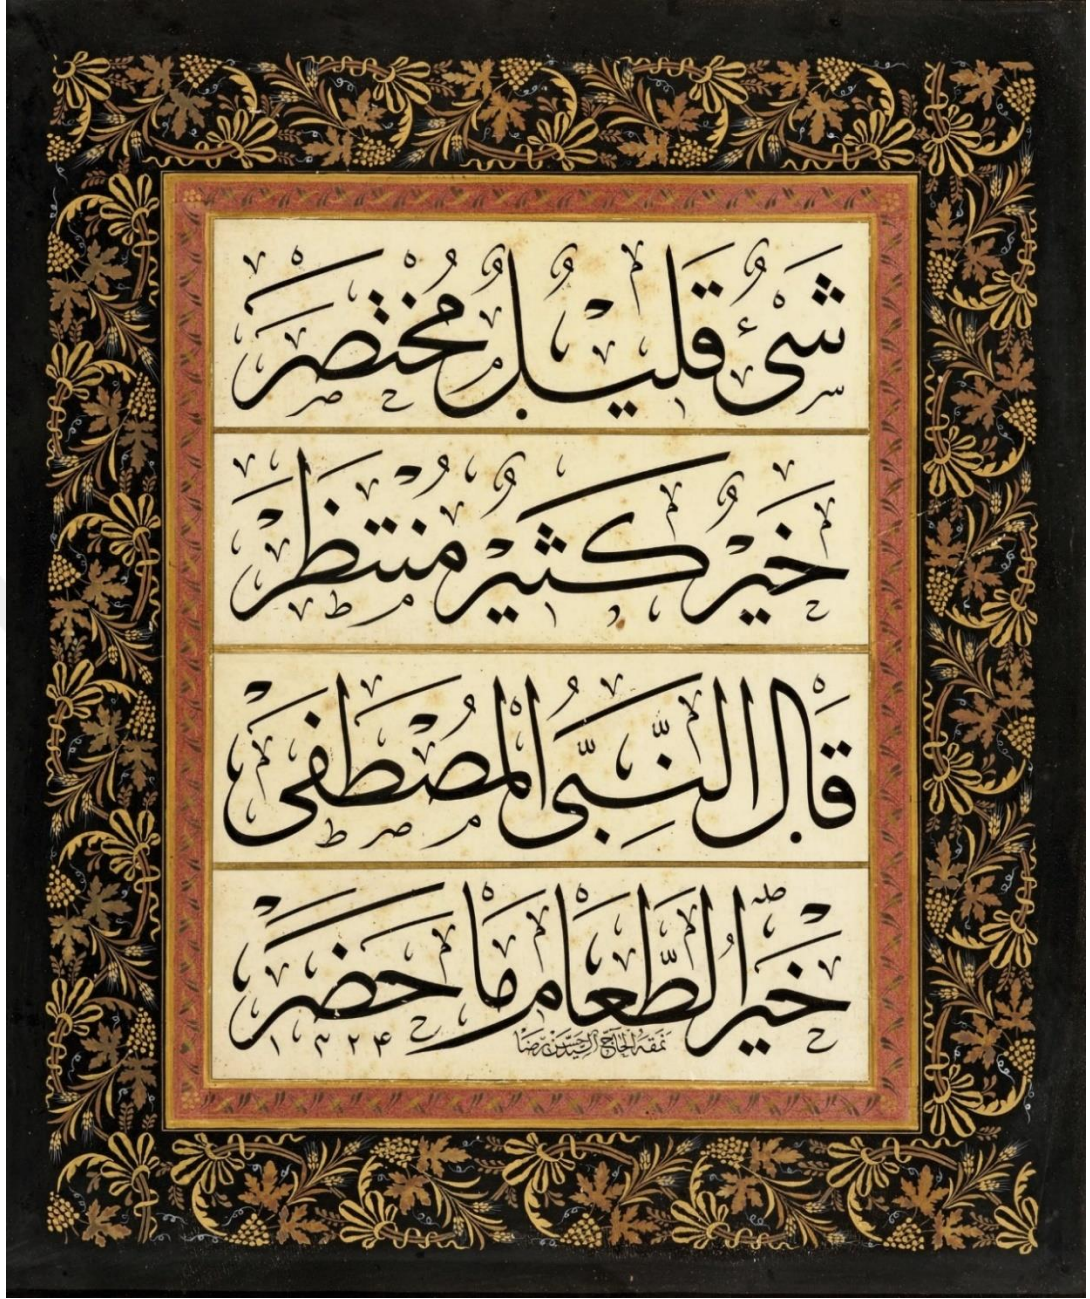 شَىْءٌ قَلِيلٌ مُخْتَصَرْ
خَيْرٌ كَثِيْرٌ مُنْتَظَرْ
قَالَ النَّبِىُّ الْمُصْطَفٰى
خَيْرُ الطَّعَامِ مَا حَضَرْ
نمقه الحاج السيد حسن رضا
١٣٢۴